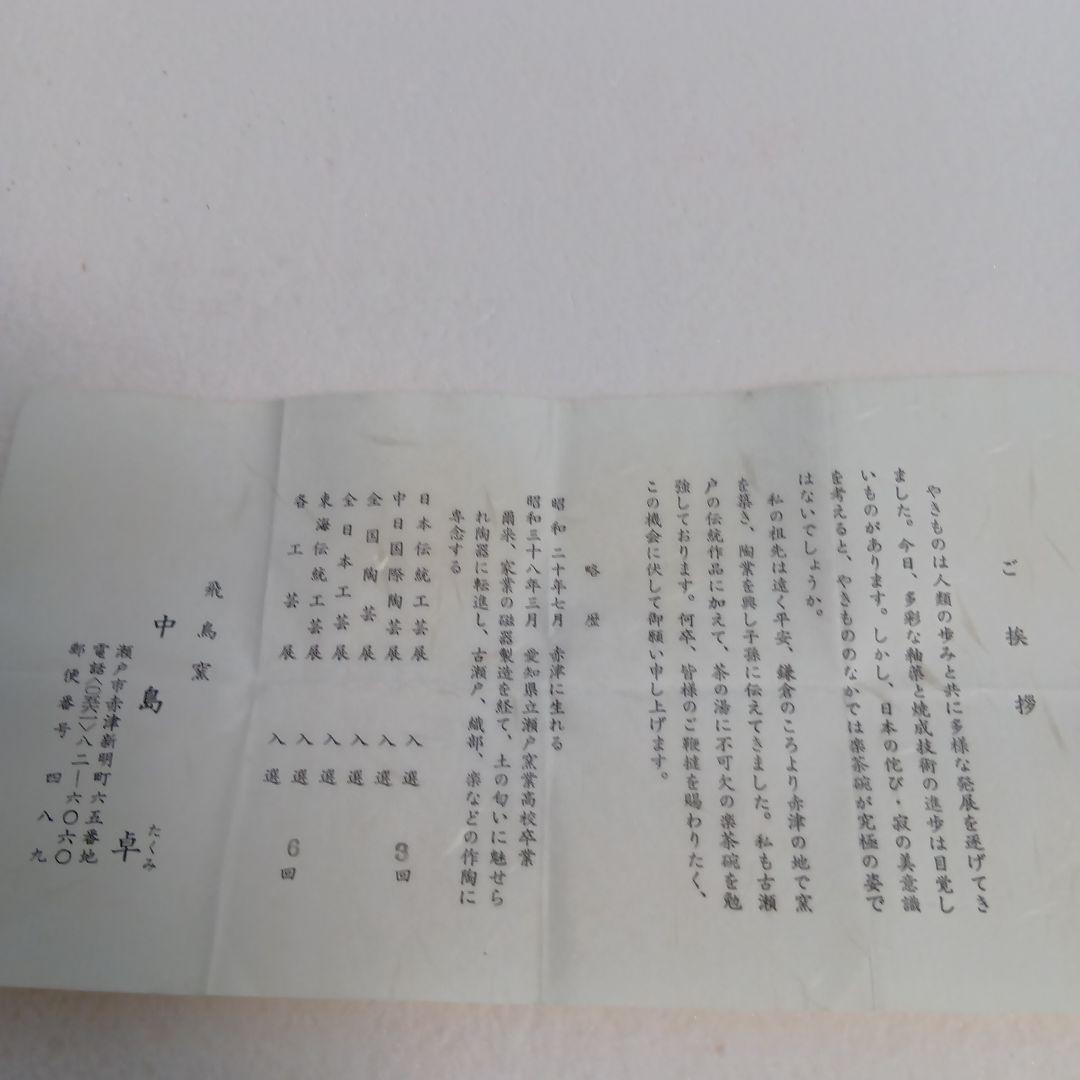 ご挨拶
やきものは人類の歩みと共に多様な発展を遂げてき
ました。今日、多彩な釉薬と焼成技術の進歩は目覚し
いものがあります。しかし、日本の侘び・寂の美意識
を考えると、やきもののなかでは楽茶碗が究極の姿で
はないでしょうか。
私の祖先は遠く平安、鎌倉のころより赤津の地で窯
を築き、陶業を興し子孫に伝えてきました。私も古瀬
戸の伝統作品に加えて、茶の湯に不可欠の楽茶碗を勉
強しております。何卒、皆様のご鞭撻を賜わりたく、
この機会に伏して御願い申し上げます。
略歴
昭和二十年七月 赤津に生れる
昭和三十八年三月 愛知県立瀬戸窯業高校卒業
爾来、家業の磁器製造を経て、土の匂いに魅せら
れ陶器に転進し、古瀬戸、織部、楽などの作陶に
専念する
日本伝統工芸展 入選 3回
中日国際陶芸展 入選
全国陶芸展 入選
全日本工芸展 入選
東海伝統工芸展 入選 6回
各工芸展 入選
飛鳥窯
中島卓
たくみ
瀬戸市赤津新明町六五番地
電話〈〇五六一〉八二―六〇六〇
郵便番号 四八九